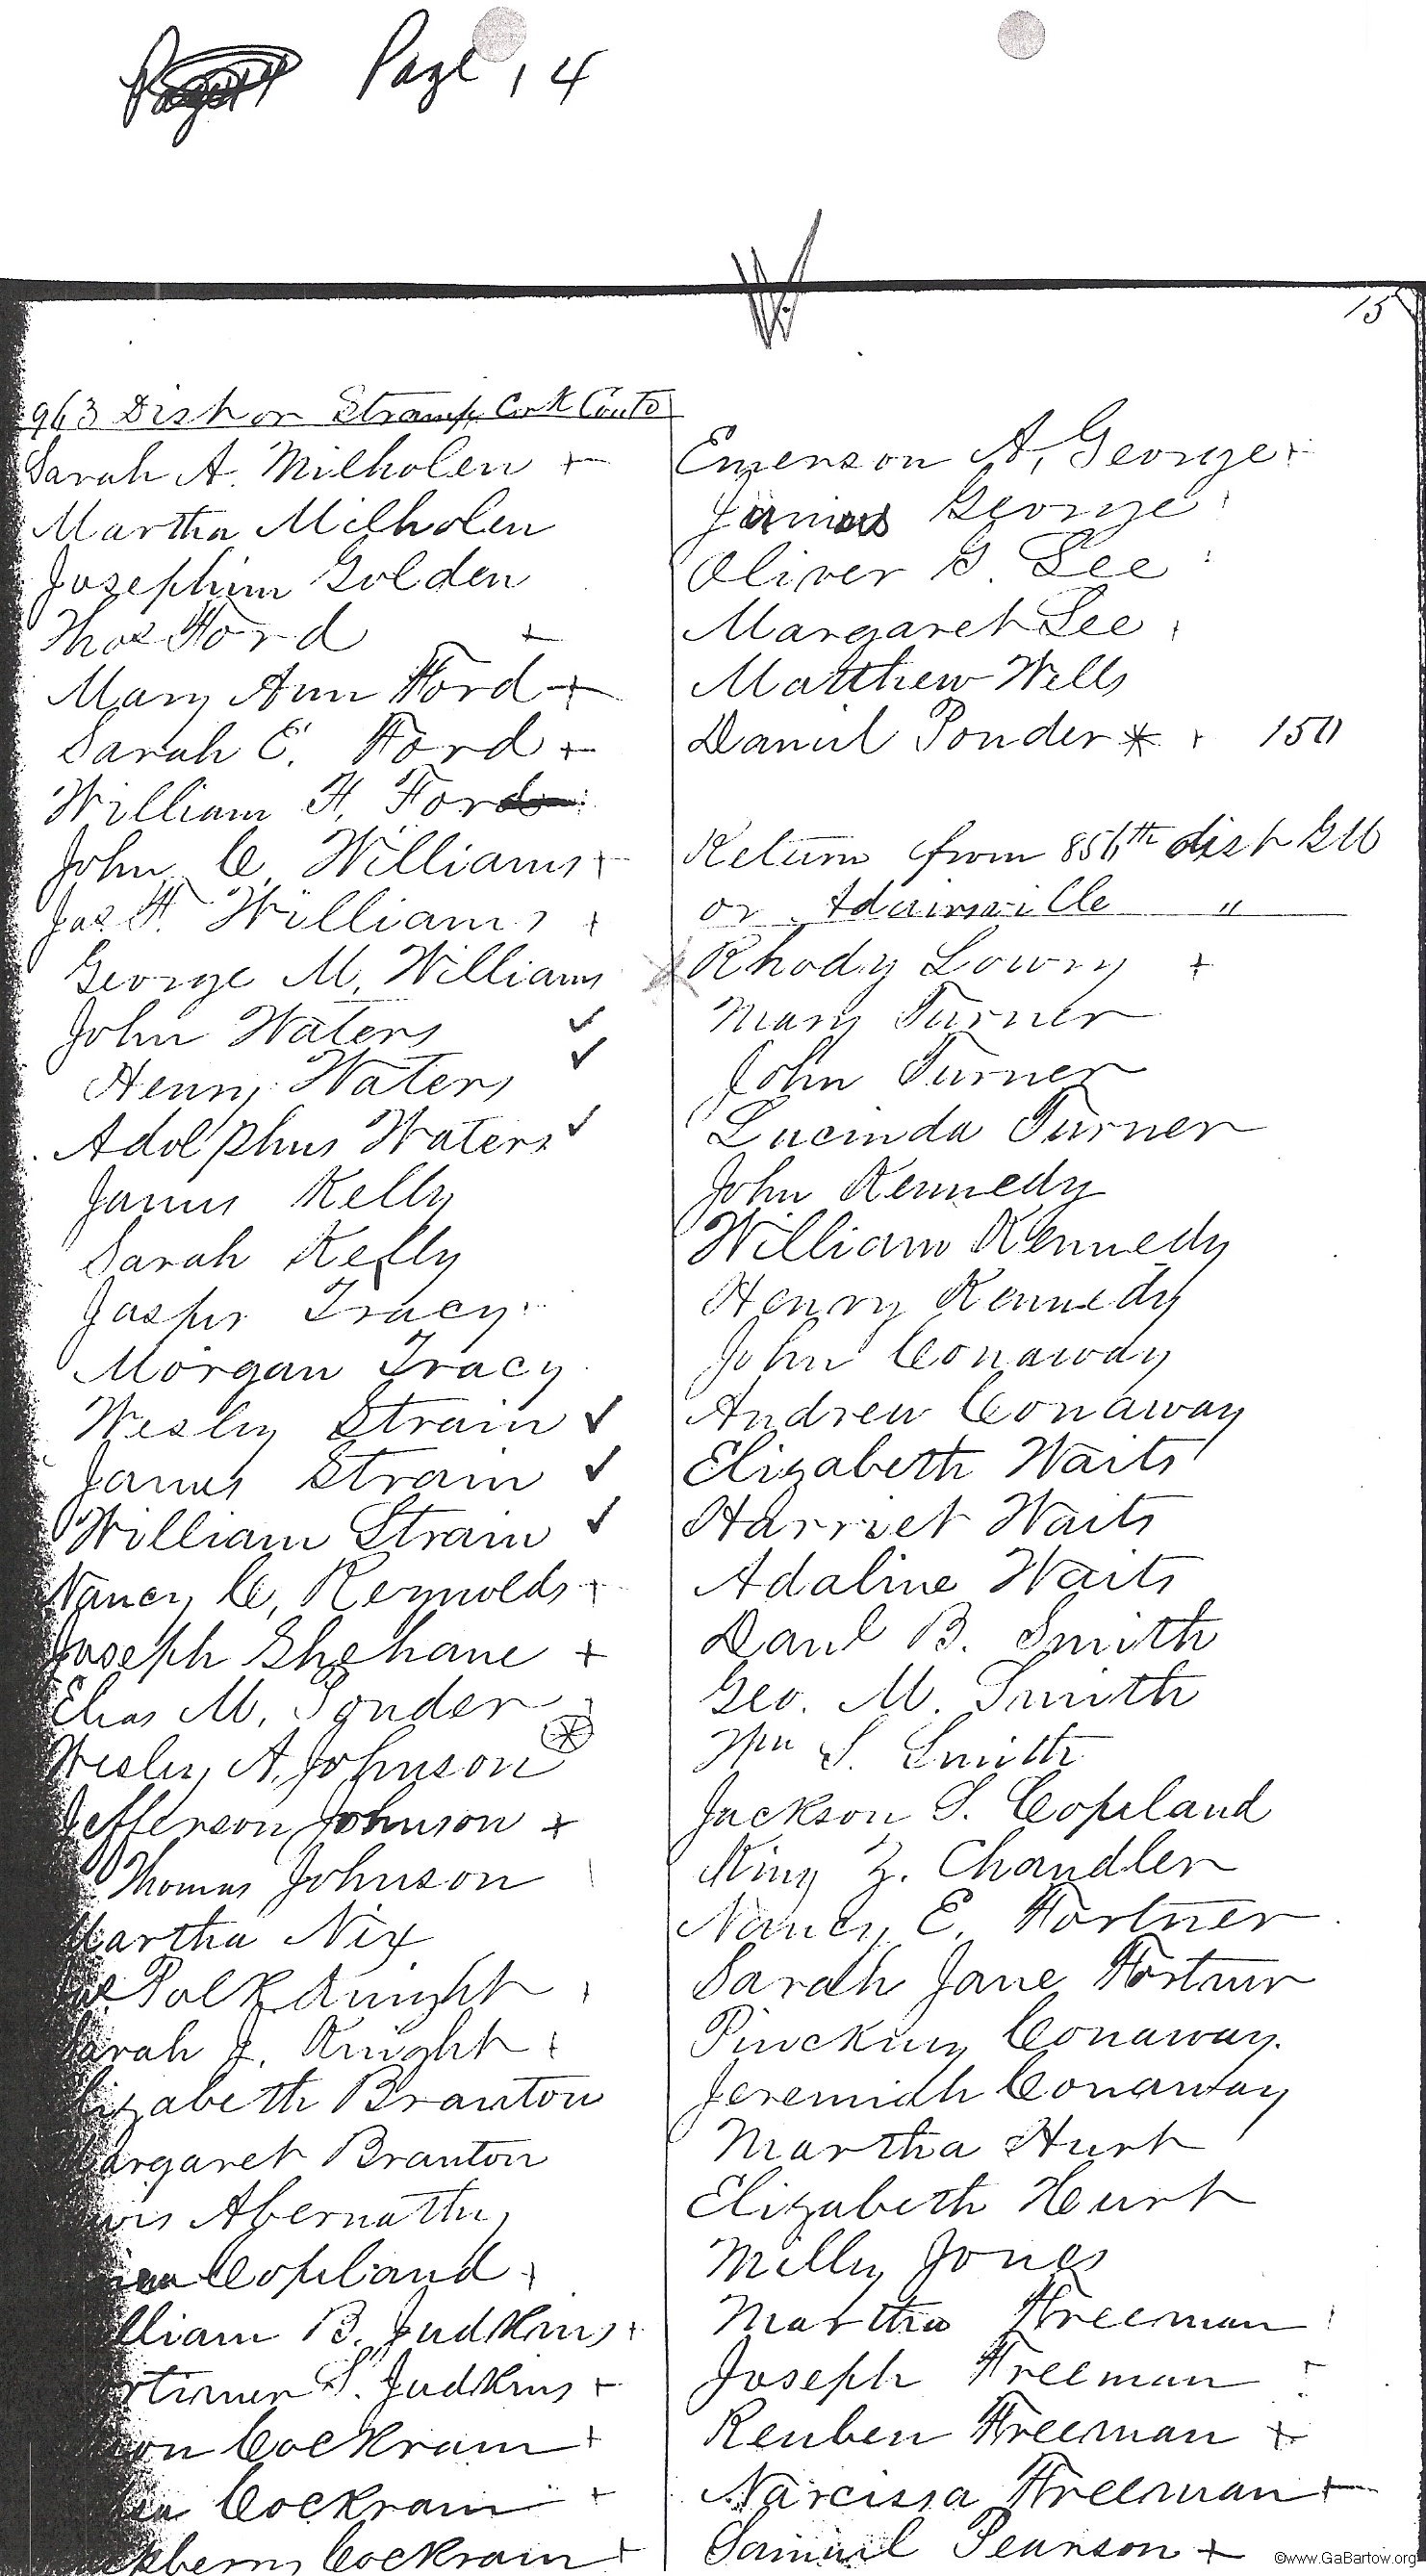 Page 14
15
963 Dist or Stamp Crk Contd
Sarah A. Milholen +
Martha Milholen
Josephine Golden
Thos Ford +
Mary Ann Ford +
Sarah E. Ford +
William H. Ford
John C. Williams +
Jas H. Williams +
George M. Williams
John Waters ✓
Henry Waters ✓
Adolphus Waters ✓
James Kelly
Sarah Kelly
Jasper Tracy
Morgan Tracy
Wesley Strain ✓
James Strain ✓
William Strain ✓
Nancy C. Reynolds +
Joseph Shehane +
Elias M. Ponder
Wesley A. Johnson
Jefferson Johnson +
Thomas Johnson
Martha Nix
Polk Knight
Sarah J. Knight +
Elizabeth Branton
Margaret Branton
Abernathy
Copeland +
William B. Judkins +
S. Judkins +
Cockram +
Cockram +
Cockram +
Emerson A. George +
James George
Oliver G. Lee
Margaret Lee
Matthew Wells
Daniel Ponder * + 150
Return from 856th dist GM
or Adairsville "
Rhody Lowry +
Mary Turner
John Turner
Lucinda Turner
John Kennedy
William Kennedy
Henry Kennedy
John Conaway
Andrew Conaway
Elizabeth Waits
Harriet Waits
Adaline Waits
Danl B. Smith
Geo. M. Smith
Wm S. Smith
Jackson S. Copeland
King Z. Chandler
Nancy E. Fortner
Sarah Jane Fortner
Pinckney Conaway.
Jeremiah Conaway
Martha Hurt
Elizabeth Hurt
Milly Jones
Martha Freeman
Joseph Freeman
Reuben Freeman +
Narcissa Freeman +
Samuel Pearson +
©www.GaBartow.org